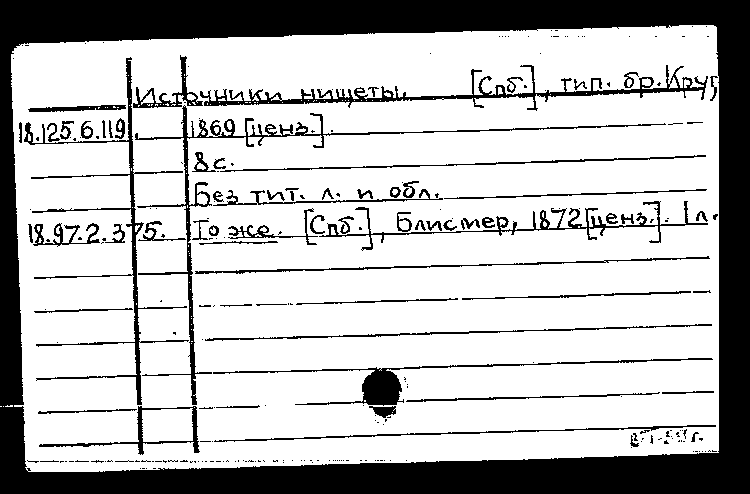 Источники нищеты. [Спб.], тип. бр. Круг,
18.125.6.119. 1869 [ценз.].
8 с.
Без тит. л. и обл.
18.97.2.375. То же. [Спб.], Блисмер, 1872 [ценз.]. 1 л.